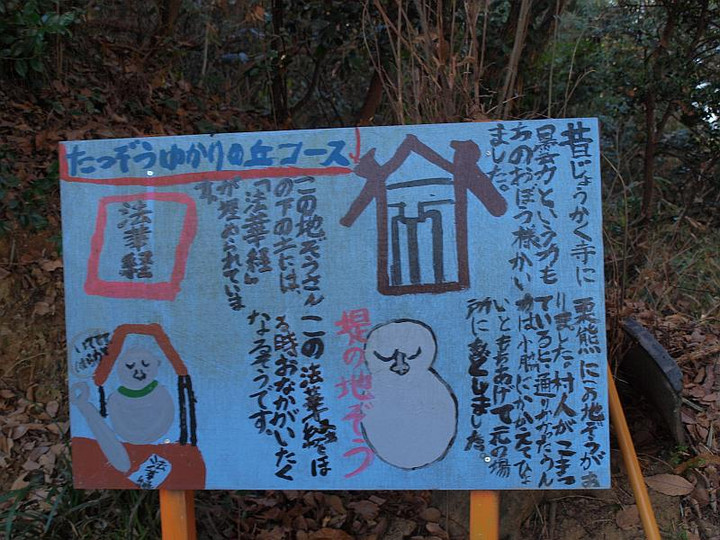 たつぞうゆかりの丘コース
昔じょうかく寺に
曇力という力も
ちのおぼう様がい
ました。
栗熊にこの地ぞうが
りました。村人がこまっ
ている時に通りかかったうん
力は小脇にかかえてひょ
いともちあげて元の場
所にもどしました
堤の地ぞう
この地ぞうさん
の下の土には、
「法華経」
が埋められていま
す。
この法華経をほ
る時おなかがいたく
なるそうです。
法華経
いててて
法華経